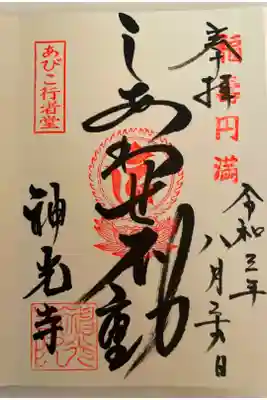 奉拝
福寿円満
令和三年
八月二十六日
しあわせ不動
あびこ行者堂
神光寺